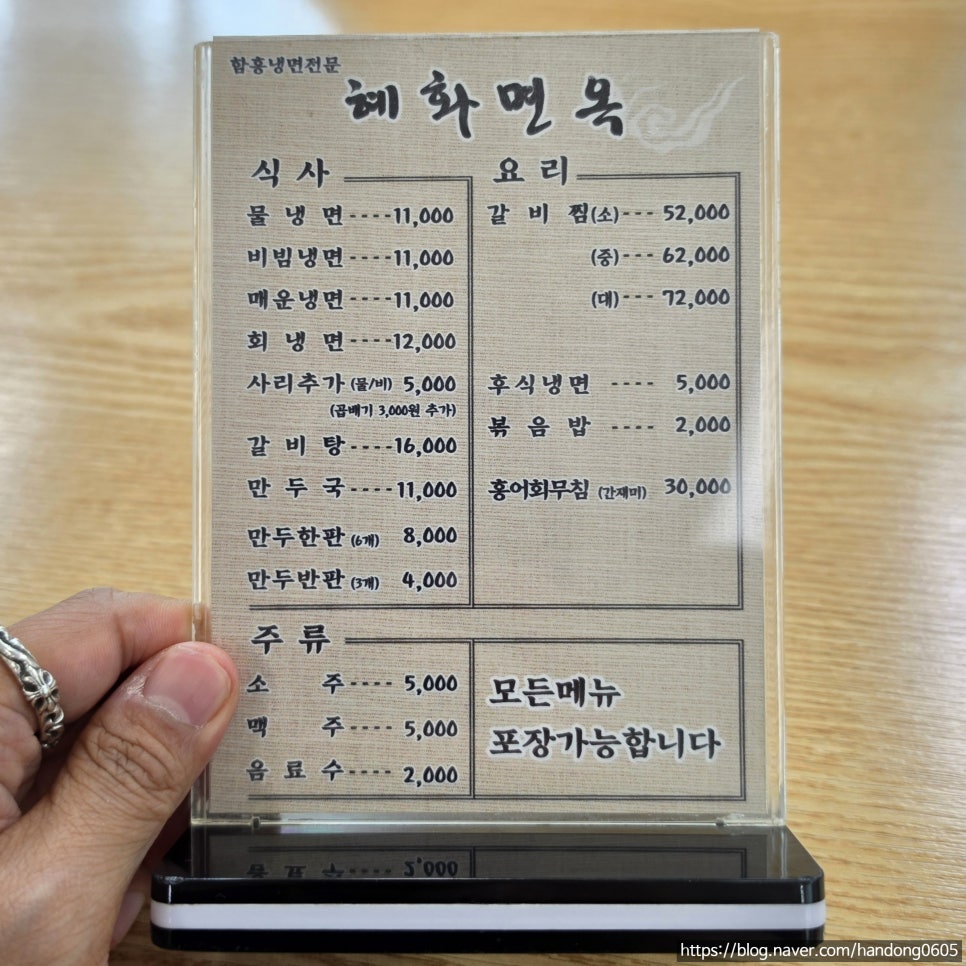 함흥냉면전문
혜화면옥
식사
물냉면----11,000
비빔냉면----11,000
매운냉면----11,000
회냉면----12,000
사리추가 (물/비) 5,000
(곱배기 3,000원 추가)
갈비탕----16,000
만두국----11,000
만두한판 (6개) 8,000
만두반판 (3개) 4,000
요리
갈비찜(소)--- 52,000
(중)--- 62,000
(대)--- 72,000
후식냉면 ---- 5,000
볶음밥 ---- 2,000
홍어회무침 (간재미) 30,000
주류
소주---- 5,000
맥주---- 5,000
음료수---- 2,000
모든메뉴
포장가능합니다
https://blog.naver.com/handong0605